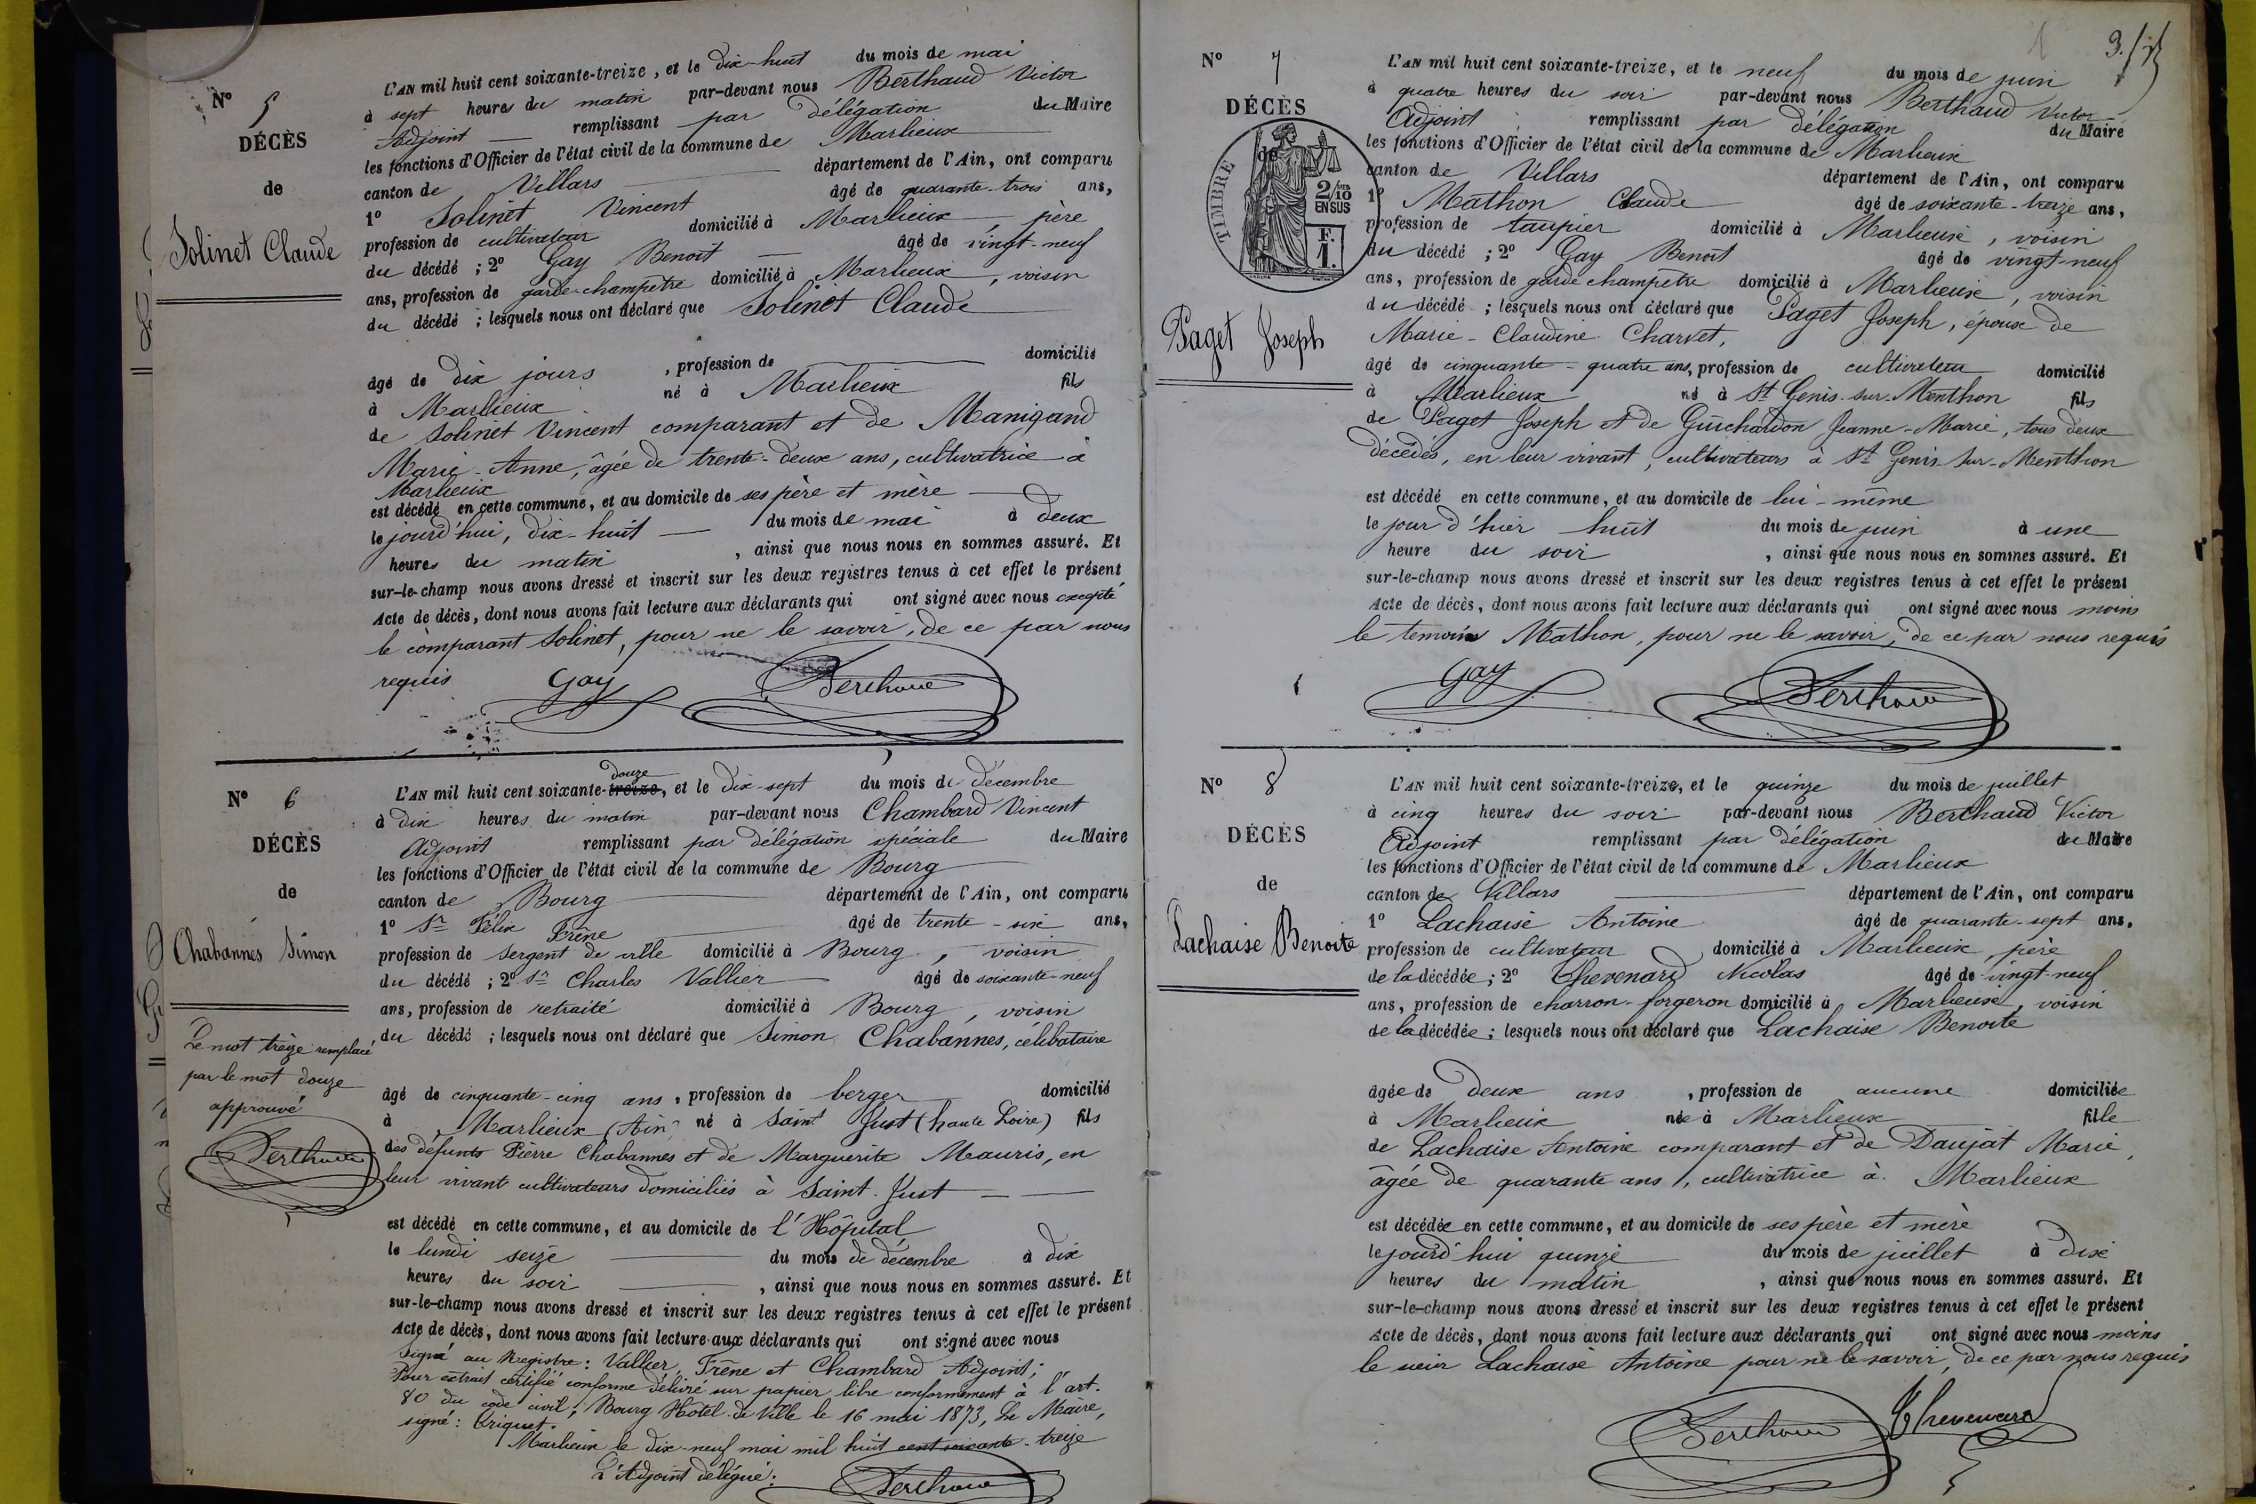 Nº 5
DÉCÈS
de
Solinet Claude
L'AN mil huit cent soixante-treize, et le dix-huit du mois de mai
à sept heures du matin par-devant nous Berthaud Victor
Adjoint remplissant par délégation du Maire
les fonctions d'Officier de l'état civil de la commune de Marlieux
canton de Villars département de l'Ain, ont comparu
1º Solinet Vincent âgé de quarante-trois ans,
profession de cultivateur domicilié à Marlieux, père
du décédé ; 2º Gay Benoit âgé de vingt-neuf
ans, profession de garde-champêtre domicilié à Marlieux, voisin
du décédé ; lesquels nous ont déclaré que Solinet Claude
âgé de dix jours, profession de domicilié
à Marlieux né à Marlieux fils
de Solinet Vincent comparant et de Manigand
Marie-Anne, âgée de trente-deux ans, cultivatrice à
Marlieux
est décédé en cette commune, et au domicile de ses père et mère
le jourd'hui, dix-huit du mois de mai à deux
heures du matin, ainsi que nous nous en sommes assuré. Et
sur-le-champ nous avons dressé et inscrit sur les deux registres tenus à cet effet le présent
Acte de décès, dont nous avons fait lecture aux déclarants qui ont signé avec nous excepté
le comparant Solinet, pour ne le savoir, de ce par nous
requis
Gay Berthaud
Nº 6
DÉCÈS
de
Chabannes Simon
Le mot treize remplacé
par le mot douze
approuvé
Berthaud
douze
L'AN mil huit cent soixante-treize, et le dix-sept du mois de décembre
à dix heures du matin par-devant nous Chambard Vincent
Adjoint remplissant par délégation spéciale du Maire
les fonctions d'Officier de l'état civil de la commune de Bourg
canton de Bourg département de l'Ain, ont comparu
1º Sr Félix Frêne âgé de trente-six ans,
profession de sergent de ville domicilié à Bourg, voisin
du décédé ; 2º Sr Charles Vallier âgé de soixante-neuf
ans, profession de retraité domicilié à Bourg, voisin
du décédé ; lesquels nous ont déclaré que Simon Chabannes, célibataire
âgé de cinquante-cinq ans, profession de berger domicilié
à Marlieux (Ain) né à Saint Just (haute Loire) fils
des défunts Pierre Chabannes et de Marguerite Mauris, en
leur vivant cultivateurs domiciliés à Saint-Just
est décédé en cette commune, et au domicile de l'Hôpital
le lundi seize du mois de décembre à dix
heures du soir, ainsi que nous nous en sommes assuré. Et
sur-le-champ nous avons dressé et inscrit sur les deux registres tenus à cet effet le présent
Acte de décès, dont nous avons fait lecture aux déclarants qui ont signé avec nous
Signé au Registre : Vallier, Frêne et Chambard Adjoint ;
Pour extrait certifié conforme délivré sur papier libre conformément à l'art.
80 du code civil ; Bourg Hotel de Ville le 16 mai 1873, Le Maire,
signé : Briquet.
Marlieux le dix-neuf mai mil huit cent soixante-treize
L'Adjoint délégué :
Berthaud
Nº 7
DÉCÈS
de
TIMBRE
2/10
EN SUS
F.
1.
Paget Joseph
L'AN mil huit cent soixante-treize, et le neuf du mois de juin
à quatre heures du soir par-devant nous Berthaud Victor
Adjoint remplissant par délégation du Maire
les fonctions d'Officier de l'état civil de la commune de Marlieux
canton de Villars département de l'Ain, ont comparu
1º Mathon Claude âgé de soixante-treize ans,
profession de taupier domicilié à Marlieux, voisin
du décédé ; 2º Gay Benoit âgé de vingt-neuf
ans, profession de garde champêtre domicilié à Marlieux, voisin
du décédé ; lesquels nous ont déclaré que Paget Joseph, époux de
Marie-Claudine Charvet,
âgé de cinquante-quatre ans, profession de cultivateur domicilié
à Marlieux né à St Genis-sur-Menthon fils
de Paget Joseph et de Guichardon Jeanne-Marie, tous deux
décédés, en leur vivant, cultivateurs à St Genis-sur-Menthon
est décédé en cette commune, et au domicile de lui-même
le jour d'hier huit du mois de juin à une
heure du soir, ainsi que nous nous en sommes assuré. Et
sur-le-champ nous avons dressé et inscrit sur les deux registres tenus à cet effet le présent
Acte de décès, dont nous avons fait lecture aux déclarants qui ont signé avec nous moins
le temoin Mathon, pour ne le savoir, de ce par nous requis
Gay Berthaud
Nº 8
DÉCÈS
de
Lachaise Benoite
L'AN mil huit cent soixante-treize, et le quinze du mois de juillet
à cinq heures du soir par-devant nous Berthaud Victor
Adjoint remplissant par délégation du Maire
les fonctions d'Officier de l'état civil de la commune de Marlieux
canton de Villars département de l'Ain, ont comparu
1º Lachaise Antoine âgé de quarante-sept ans,
profession de cultivateur domicilié à Marlieux, père
de la décédée ; 2º Thevenard Nicolas âgé de vingt-neuf
ans, profession de charron-forgeron domicilié à Marlieux, voisin
de la décédée ; lesquels nous ont déclaré que Lachaise Benoite
âgée de deux ans, profession de aucune domiciliée
à Marlieux née à Marlieux fille
de Lachaise Antoine comparant et de Daujat Marie,
âgée de quarante ans, cultivatrice à Marlieux
est décédée en cette commune, et au domicile de ses père et mère
le jourd'hui quinze du mois de juillet à dix
heures du matin, ainsi que nous nous en sommes assuré. Et
sur-le-champ nous avons dressé et inscrit sur les deux registres tenus à cet effet le présent
Acte de décès, dont nous avons fait lecture aux déclarants qui ont signé avec nous moins
le sieur Lachaise Antoine pour ne le savoir, de ce par nous requis
Berthaud Thevenard